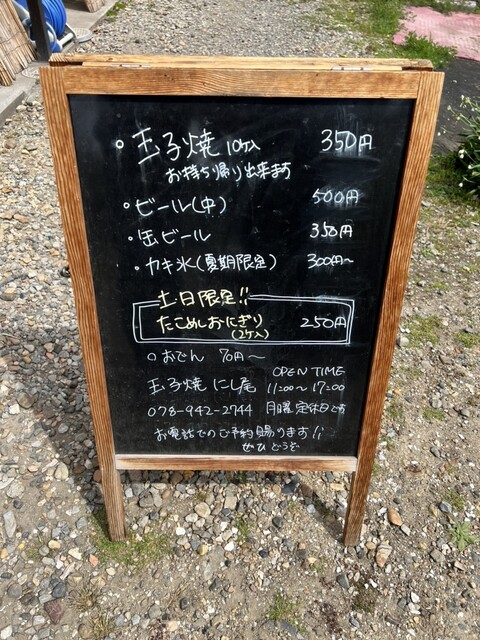 ・玉子焼 10ケ入 350円
お持ち帰り出来ます
・ビール(中) 500円
・缶ビール 350円
・カキ氷(夏期限定) 300円～
土日限定!!
たこめしおにぎり 250円
(2ケ入)
○おでん 70円～
OPEN TIME
玉子焼 にし尾 11:00～17:00
078-942-2744 月曜定休日です
お電話でのご予約賜ります!!
ぜひどうぞ